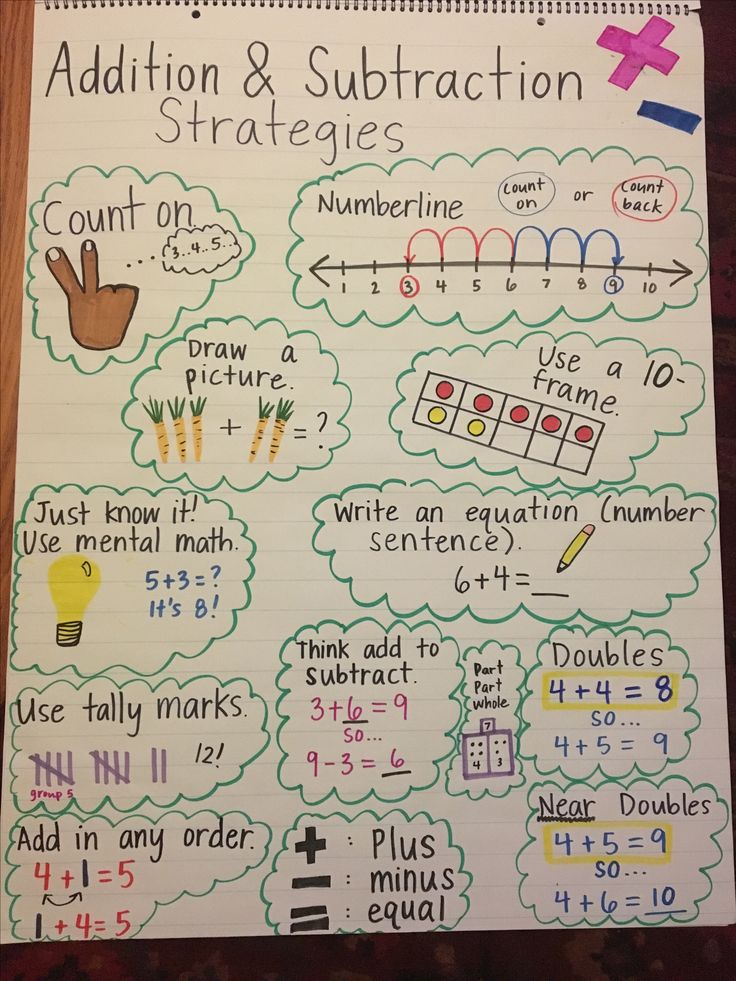 Addition & Subtraction
Strategies
Count on
... 3..4..5...
Numberline
count
on
or
count
back
1 2 3 4 5 6 7 8 9 10
Draw a
picture.
+ = ?
Use a 10-
frame.
Just know it!
Use mental math.
5+3=?
It's 8!
Write an equation (number
sentence).
6+4=__
Use tally marks.
12!
group 5
Think add to
subtract.
3+6=9
so...
9-3=6
Part
Part
whole
7
4 3
Doubles
4+4=8
so...
4+5=9
Add in any order.
4+1=5
1+4=5
+ : Plus
- : minus
= : equal
Near Doubles
4+5=9
so...
4+6=10